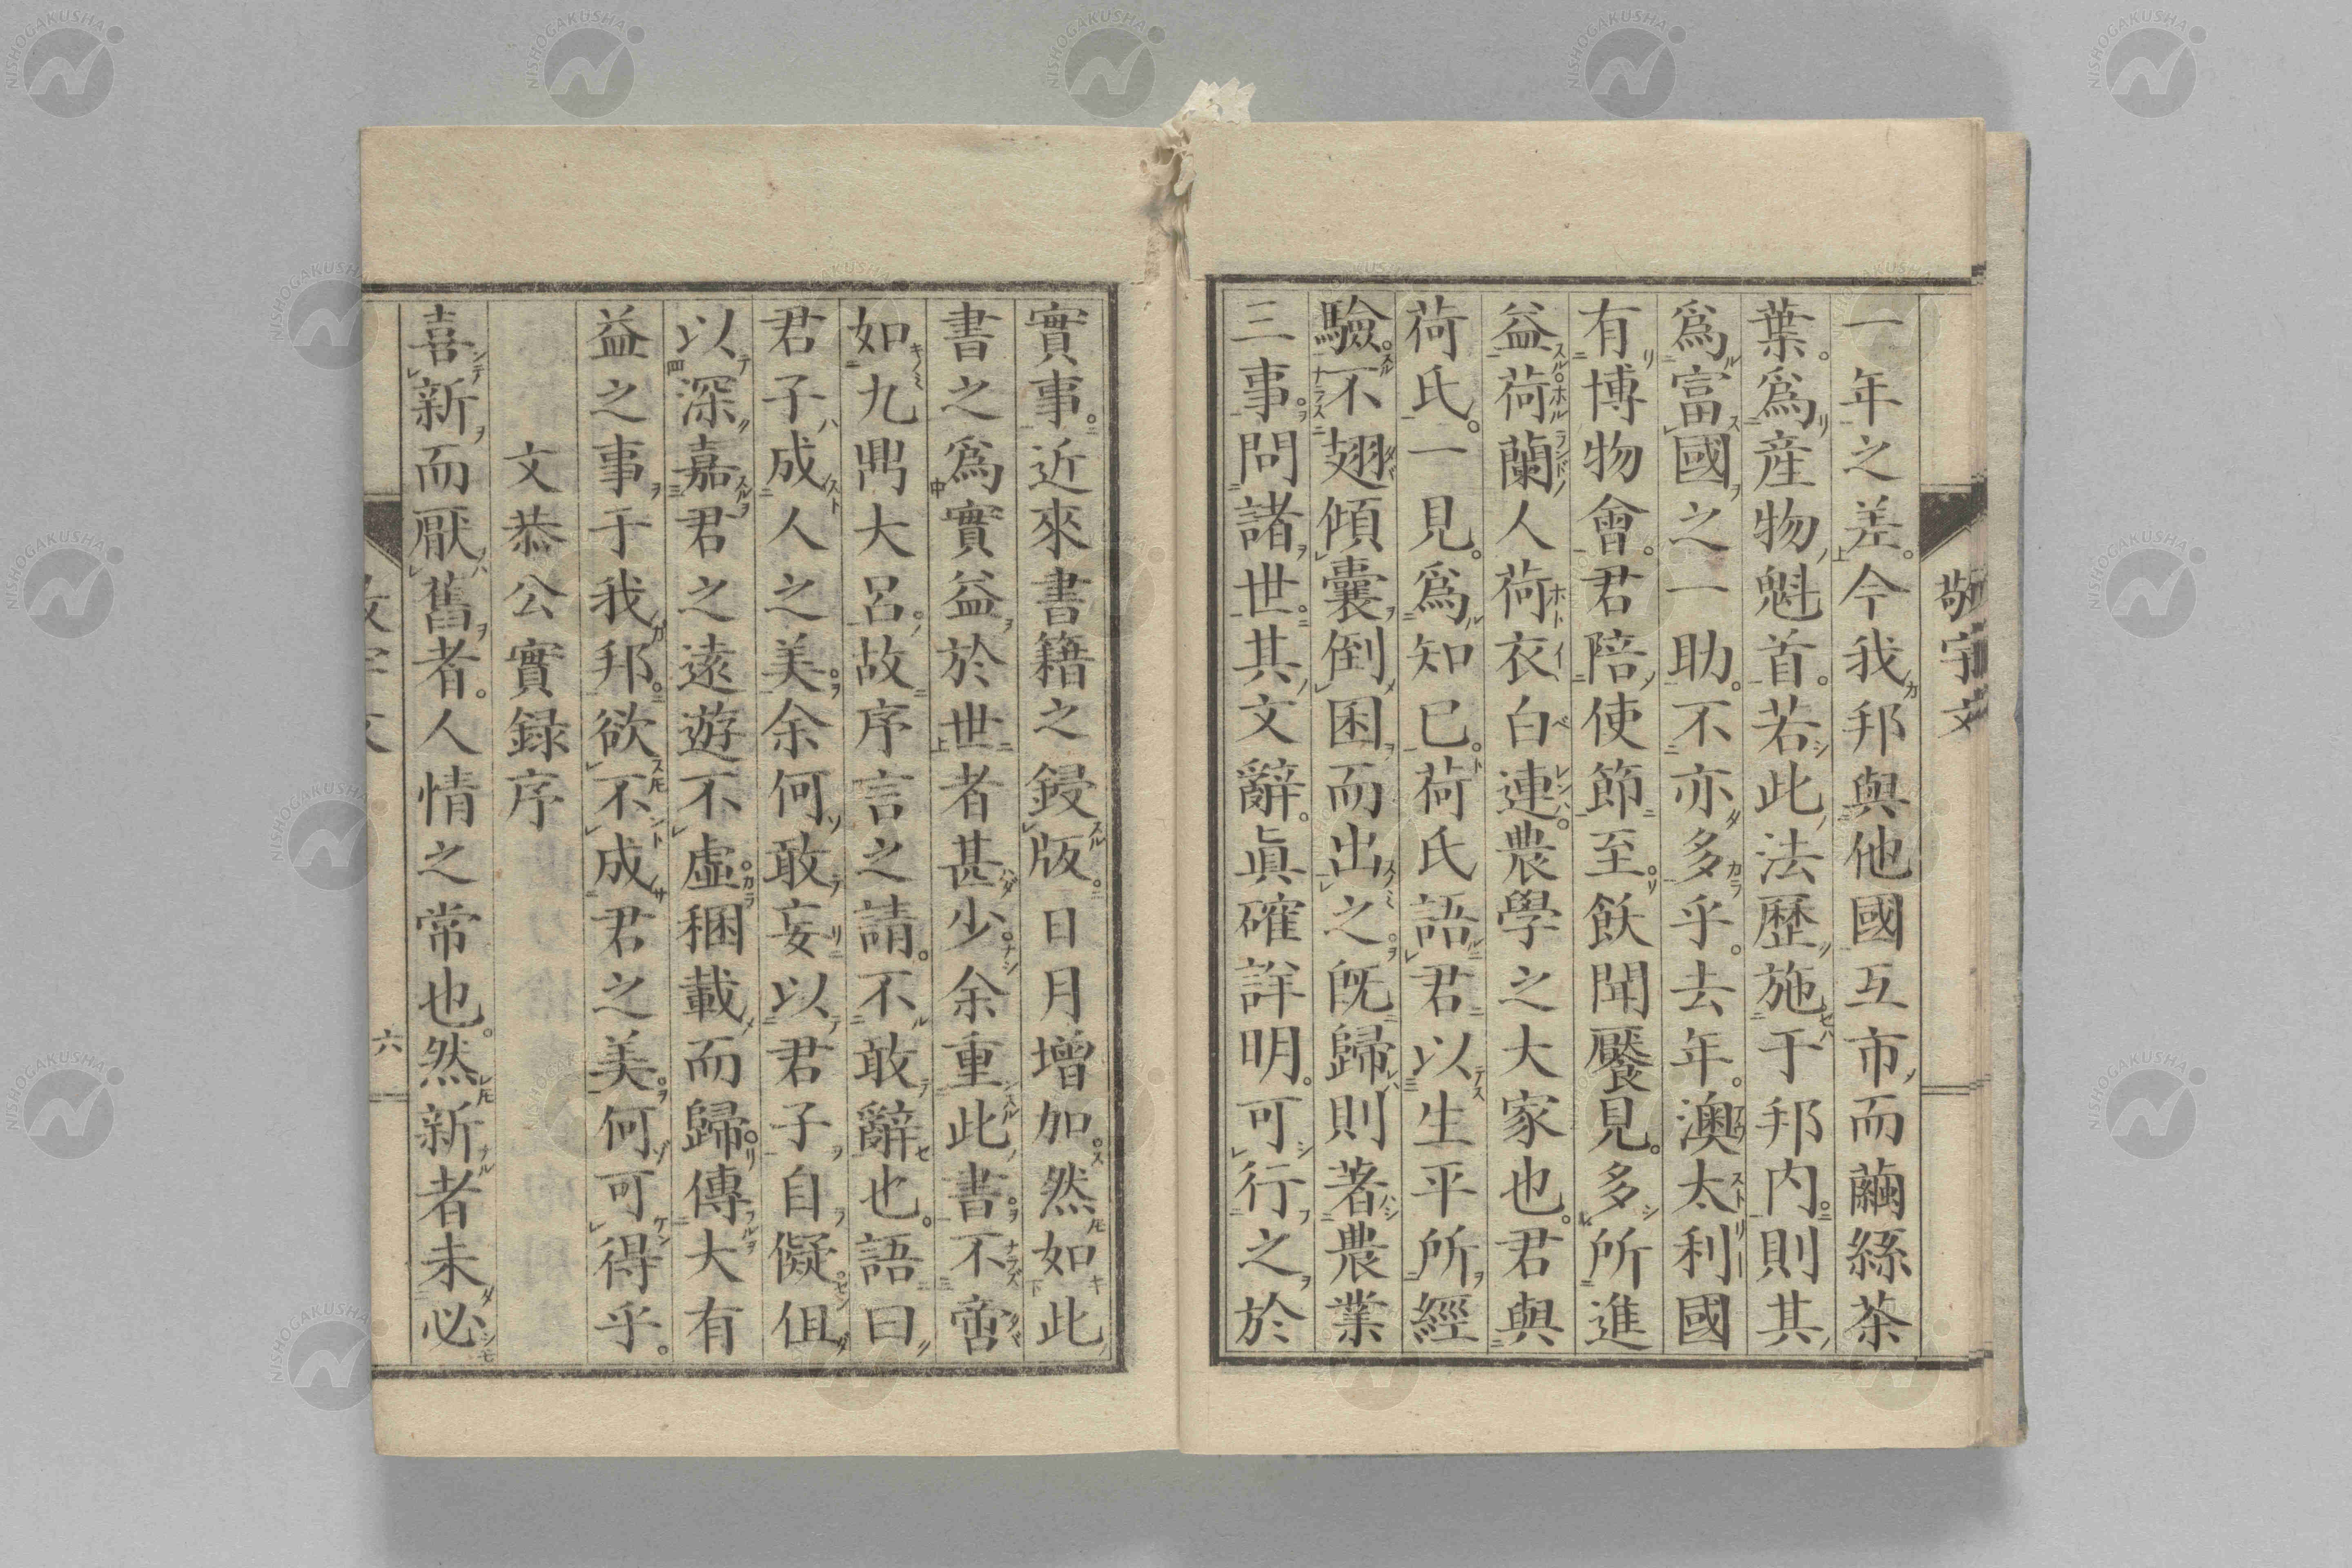 敬宇文
一年之差。今我邦與他國互市。而繭絲茶
葉。爲産物魁首。若此法歷施于邦内。則其
爲富國之一助。不亦多乎。去年。澳太利國
有博物會。君陪使節至。飫聞饜見。多所進
益。荷蘭人荷衣白連。農學之大家也。君與
荷氏。一見。爲知已。荷氏語君以生平所經
驗。不翅傾囊倒囷而出之。既歸則著農業
三事。問諸世。其文辭。眞確詳明。可行之於
實事。近來書籍之鋟版。日月增加。然如此
書之爲實益於世者甚少。余重此書。不啻
如九鼎大呂。故序言之請。不敢辭也。語曰
君子成人之美。余何敢妄以君子自儗。但
以深嘉君之遠遊不虛。稛載而歸。傳大有
益之事于我邦。欲不成君之美。何可得乎。
文恭公實録序
喜新而厭舊者。人情之常也。然新者未必
六